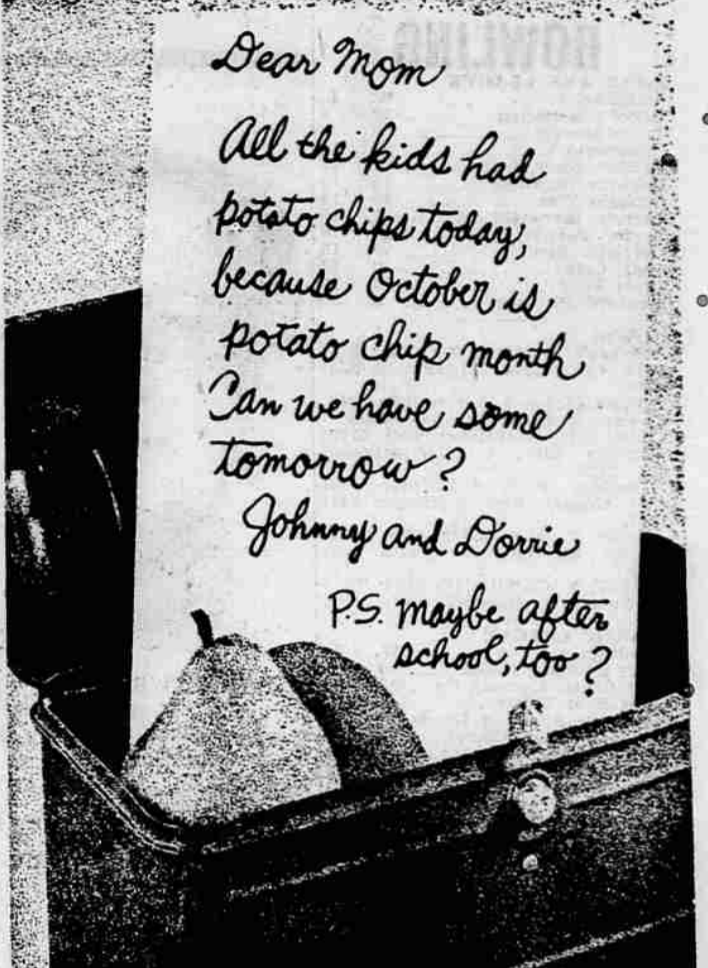 Dear Mom
All the kids had
potato chips today,
because October is
potato chip month
Can we have some
tomorrow?
Johnny and Dorrie
P.S. Maybe after
school, too?
BOWLING